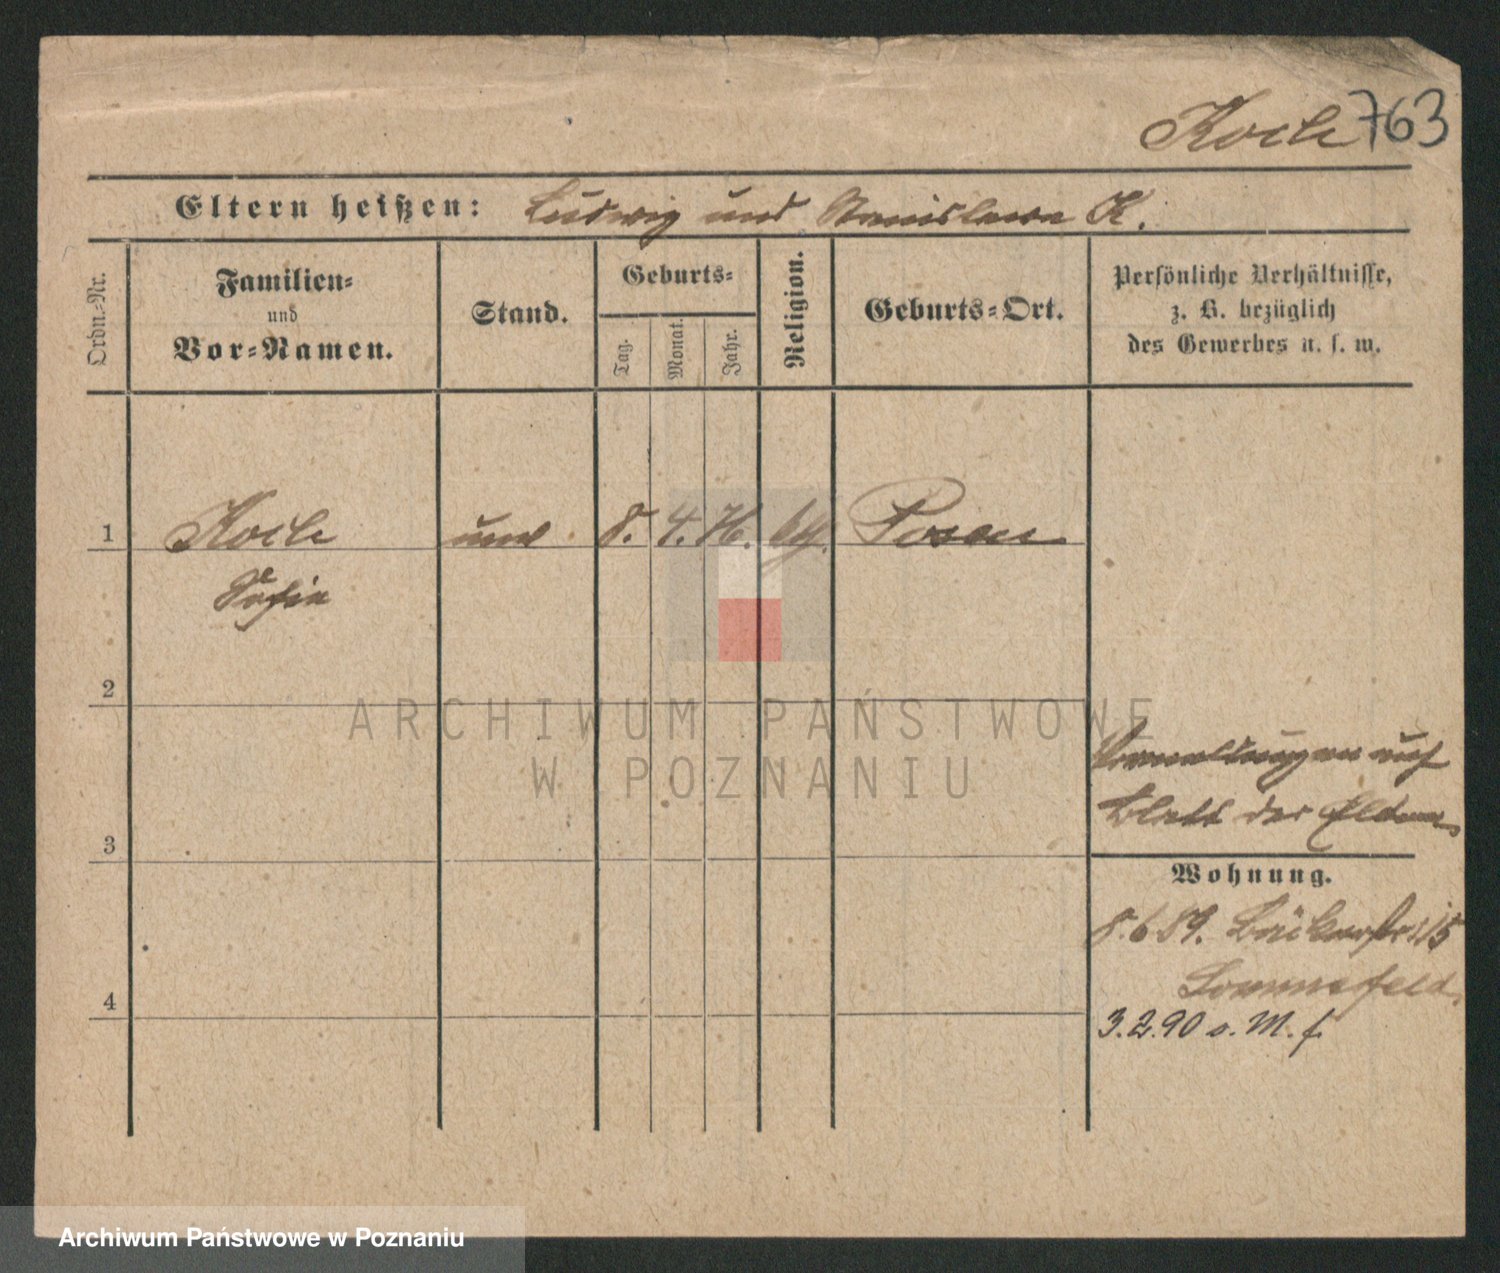 Koch 763
Eltern heißen: Ludwig und Stanislawa K.
Ordn.-Nr.
Familien-
und
Vor-Namen.
Stand.
Geburts-
Tag.
Monat.
Jahr.
Religion.
Geburts-Ort.
Persönliche Verhältnisse,
z. B. bezüglich
des Gewerbes u. s. w.
1 Koch 8. 4. 76. Posen
Sofie
2
auf
Blatt der Eltern
3
Wohnung.
8.6.89. Bäckerstr.
4
3.2.90
ARCHIWUM PAŃSTWOWE
W POZNANIU
Archiwum Państwowe w Poznaniu